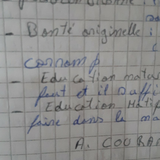 - Bonté originelle :
corromp
- Education natu
faut et il suffi
Education
faire dans la ma
A. COURA